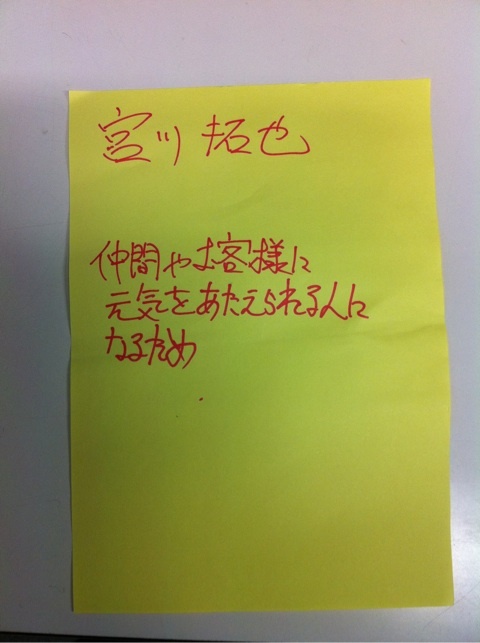 宮川 拓也
仲間やお客様に
元気をあたえられる人に
なるため